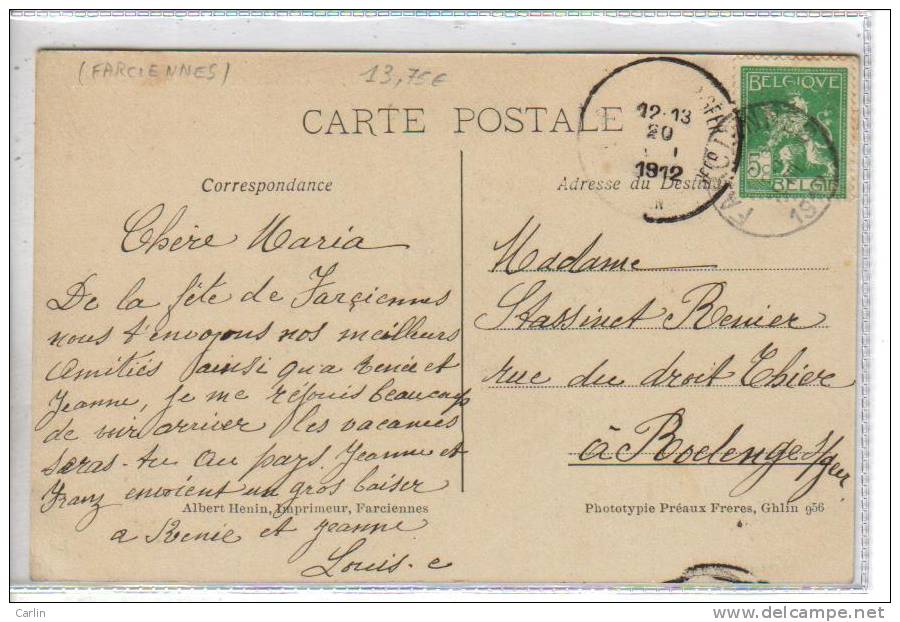 (FARCIENNES)
13,75€
CARTE POSTALE
Correspondance
Adresse du Destin
12-13
20
1912
BELGIQUE
5c
BELGIË
Chère Maria
De la fête de Farçiennes
nous t'envoyons nos meilleurs
Amitiés ainsi qu'a Renié et
Jeanne, je me réjouis beaucoup
de voir arriver les vacances
seras-tu au pays. Jeanne et
Franz envoient un gros baiser
a Renie et Jeanne
Louis. c
Madame
Stassinet Renier
rue du droit Thier
à Boclenge s/geer
Albert Henin, Imprimeur, Farciennes
Phototypie Préaux Freres, Ghlin 956
Carlin
www.delcampe.net